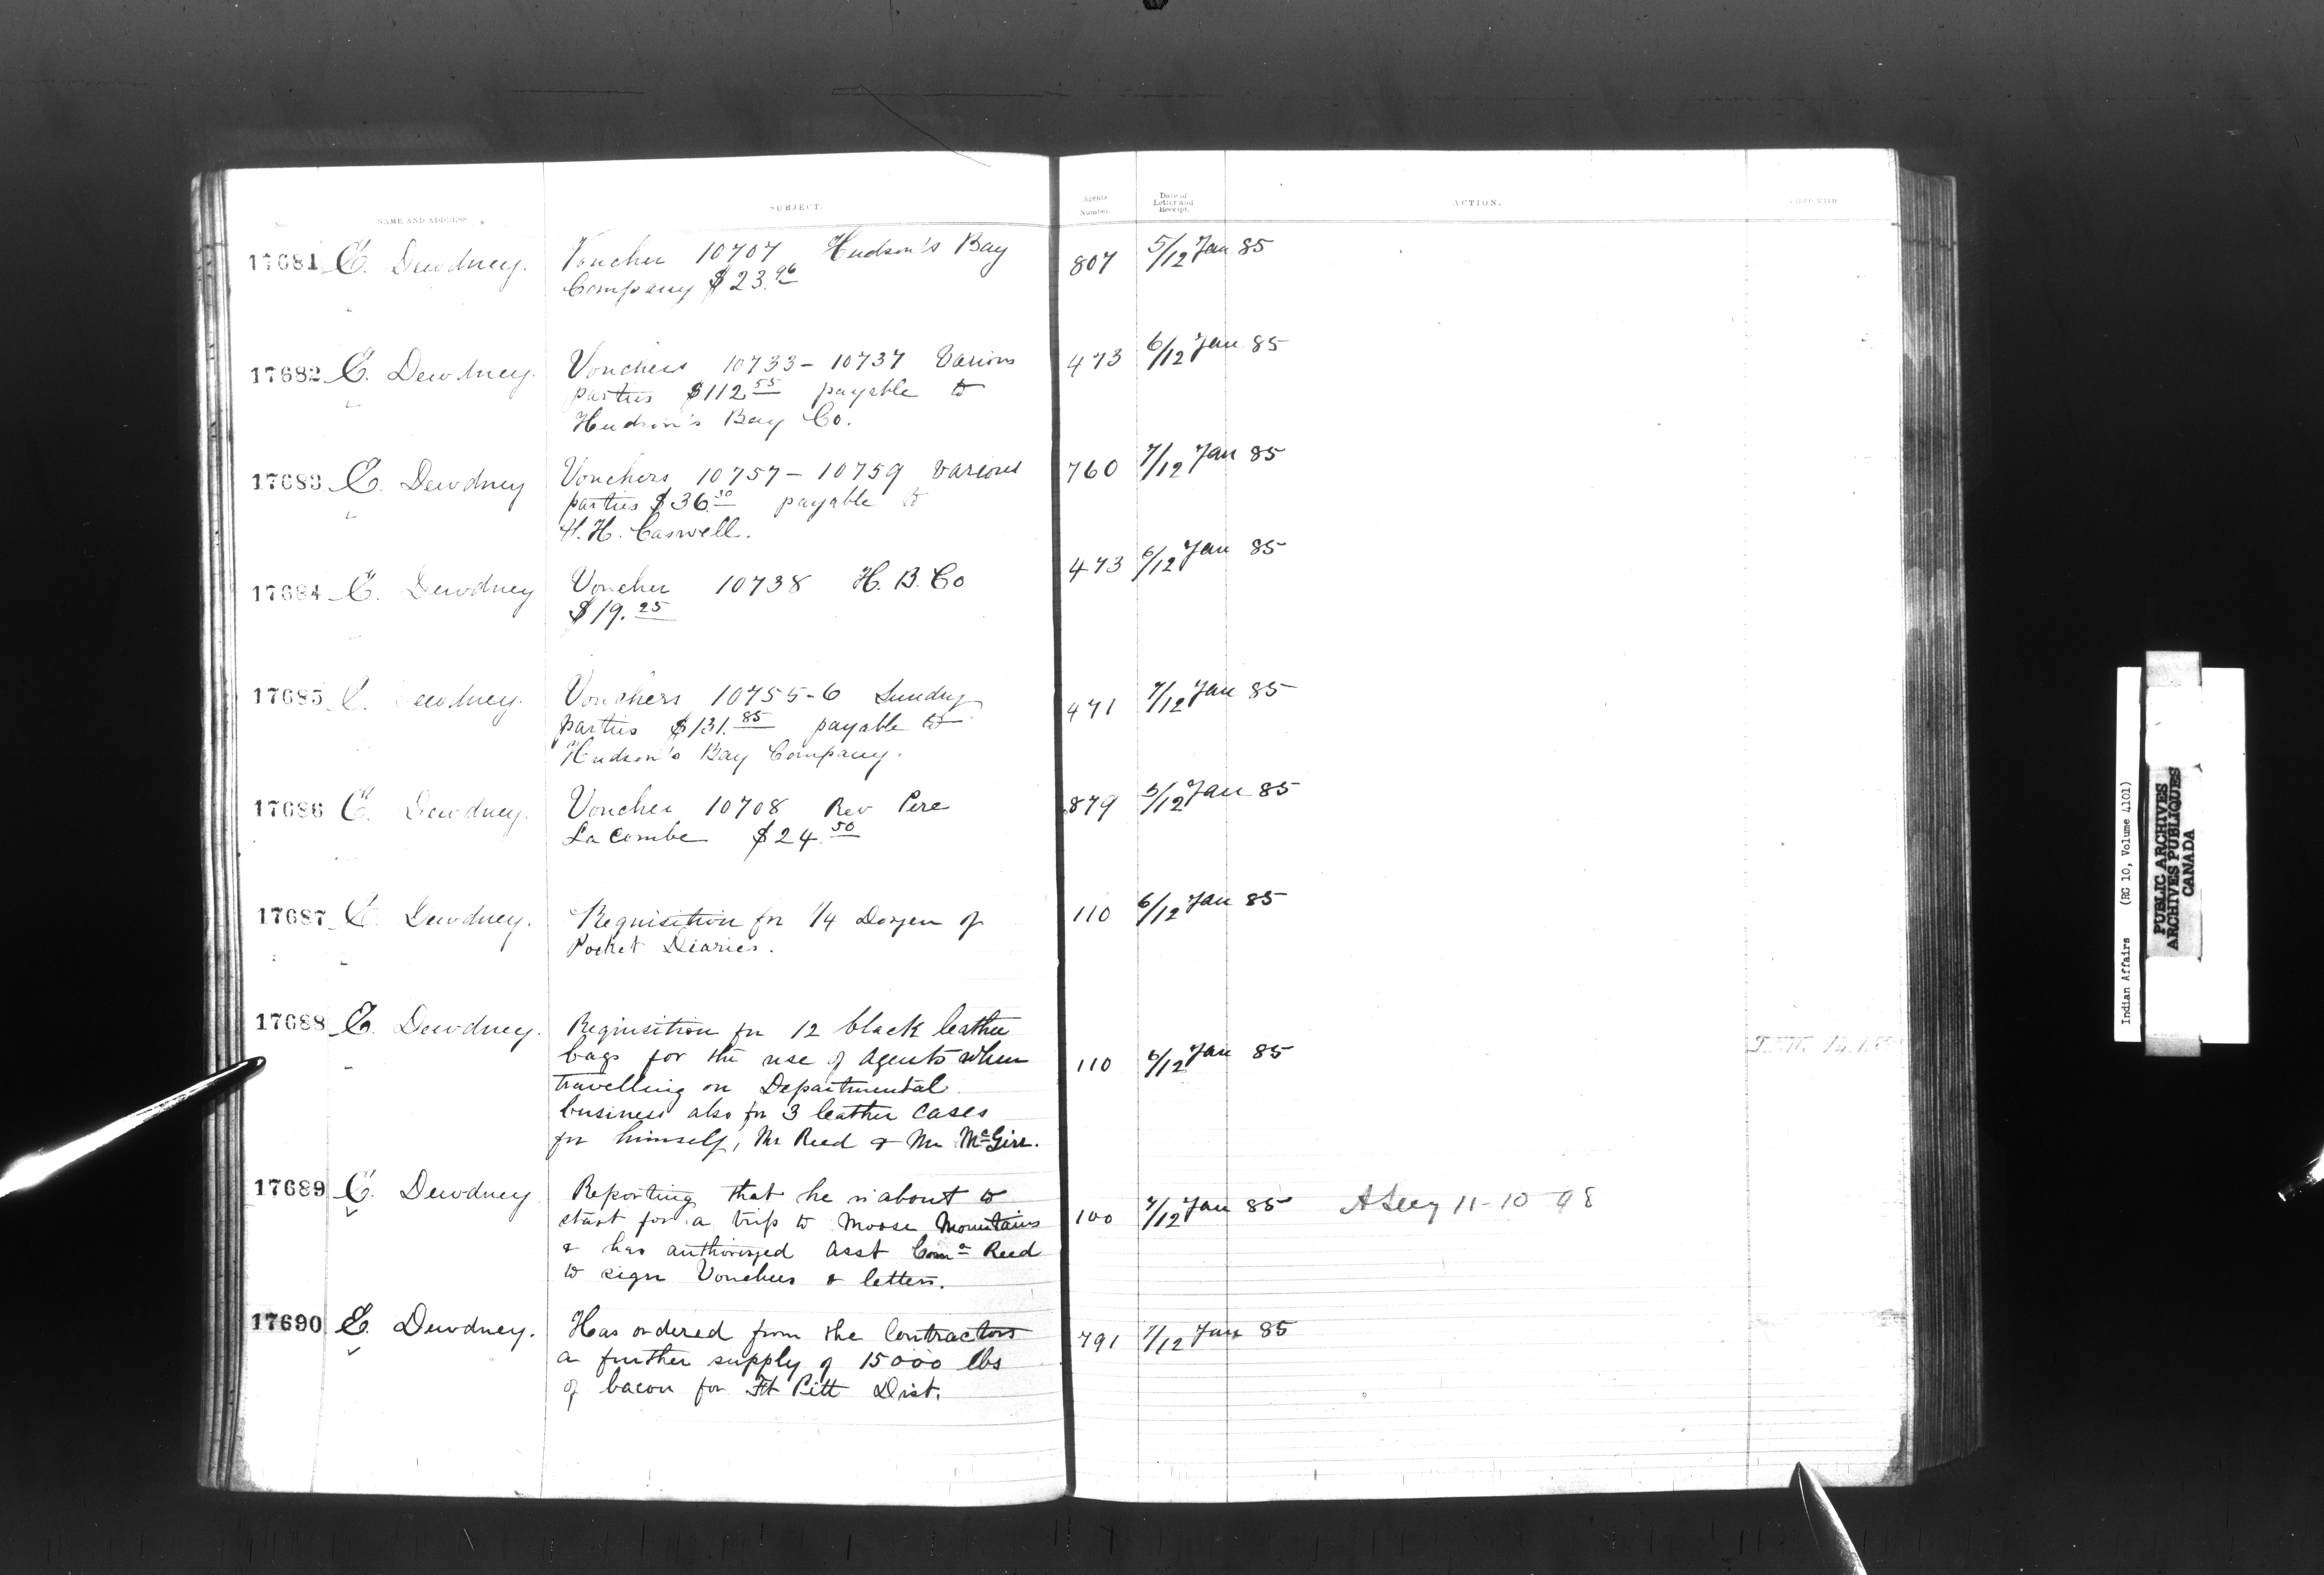 No. NAME AND ADDRESS SUBJECT. Agents Number. Date of Letter and Receipt. ACTION. FILED WITH
17681 E. Dewdney. Voucher 10707 Hudson's Bay 807 5/12 Jan 85
Company $23.96
17682 E. Dewdney. Vouchers 10733-10737 Various 473 6/12 Jan 85
parties $112.55 payable to
Hudson's Bay Co.
17683 E. Dewdney Vouchers 10757-10759 various 760 7/12 Jan 85
parties $36.30 payable to
H. H. Caswell.
17684 E. Dewdney Voucher 10738 H. B. Co 473 6/12 Jan 85
$19.25
17685 E. Dewdney. Vouchers 10755-6 Sundry 471 7/12 Jan 85
parties $131.85 payable to
Hudson's Bay Company.
17686 E. Dewdney. Voucher 10708 Rev Pere 879 5/12 Jan 85
La Combe $24.50
17687 E. Dewdney. Requisition for 1/4 Dozen of 110 6/12 Jan 85
Pocket Diaries.
17688 E. Dewdney. Requisition for 12 black leather
bags for the use of Agents when 110 6/12 Jan 85
travelling on Departmental
business also for 3 leather cases
for himself, Mr Reed & Mr McGirr.
17689 E. Dewdney Reporting that he is about to 100 7/12 Jan 85 11-10-98
start for a trip to Moose Mountains
& has authorized Asst Comr Reed
to sign Vouchers & letters.
17690 E. Dewdney. Has ordered from the Contractors 791 7/12 Jan 85
a further supply of 15000 lbs
of bacon for Ft Pitt Dist.
Indian Affairs (RG 10, Volume 4101)
PUBLIC ARCHIVES
ARCHIVES PUBLIQUES
CANADA